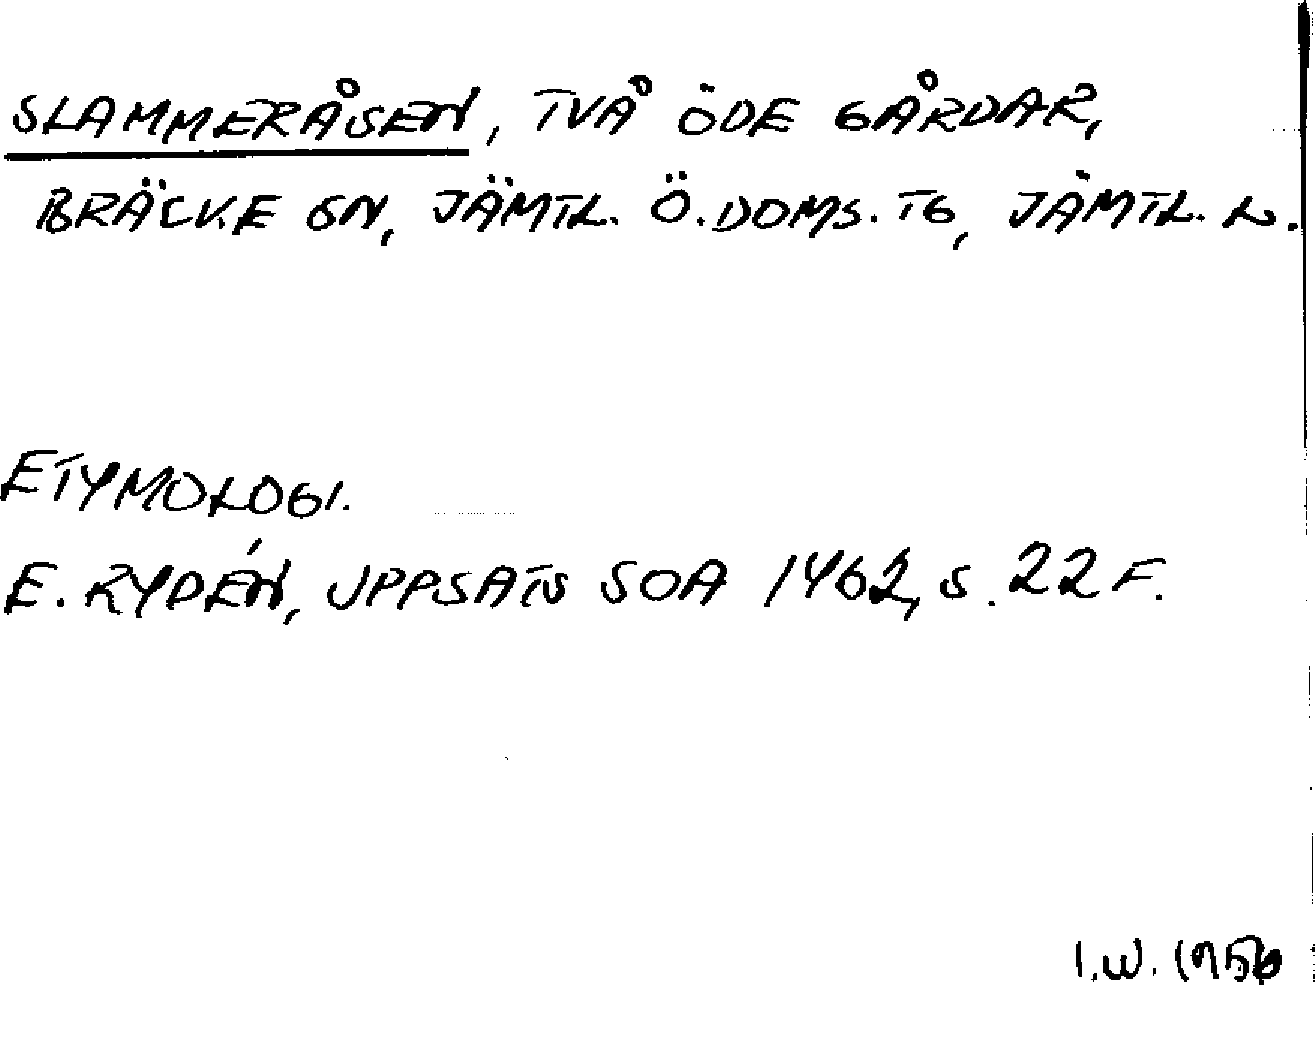 SLAMMERÅSEN, TVÅ ÖDE GÅRDAR,
BRÄCKE SN, JÄMTL. Ö. DOMS. TG, JÄMTL. L.
ETYMOLOGI.
E. RYDÉN, UPPSATS SOA 1462, S. 22 F.
I.W. 1956